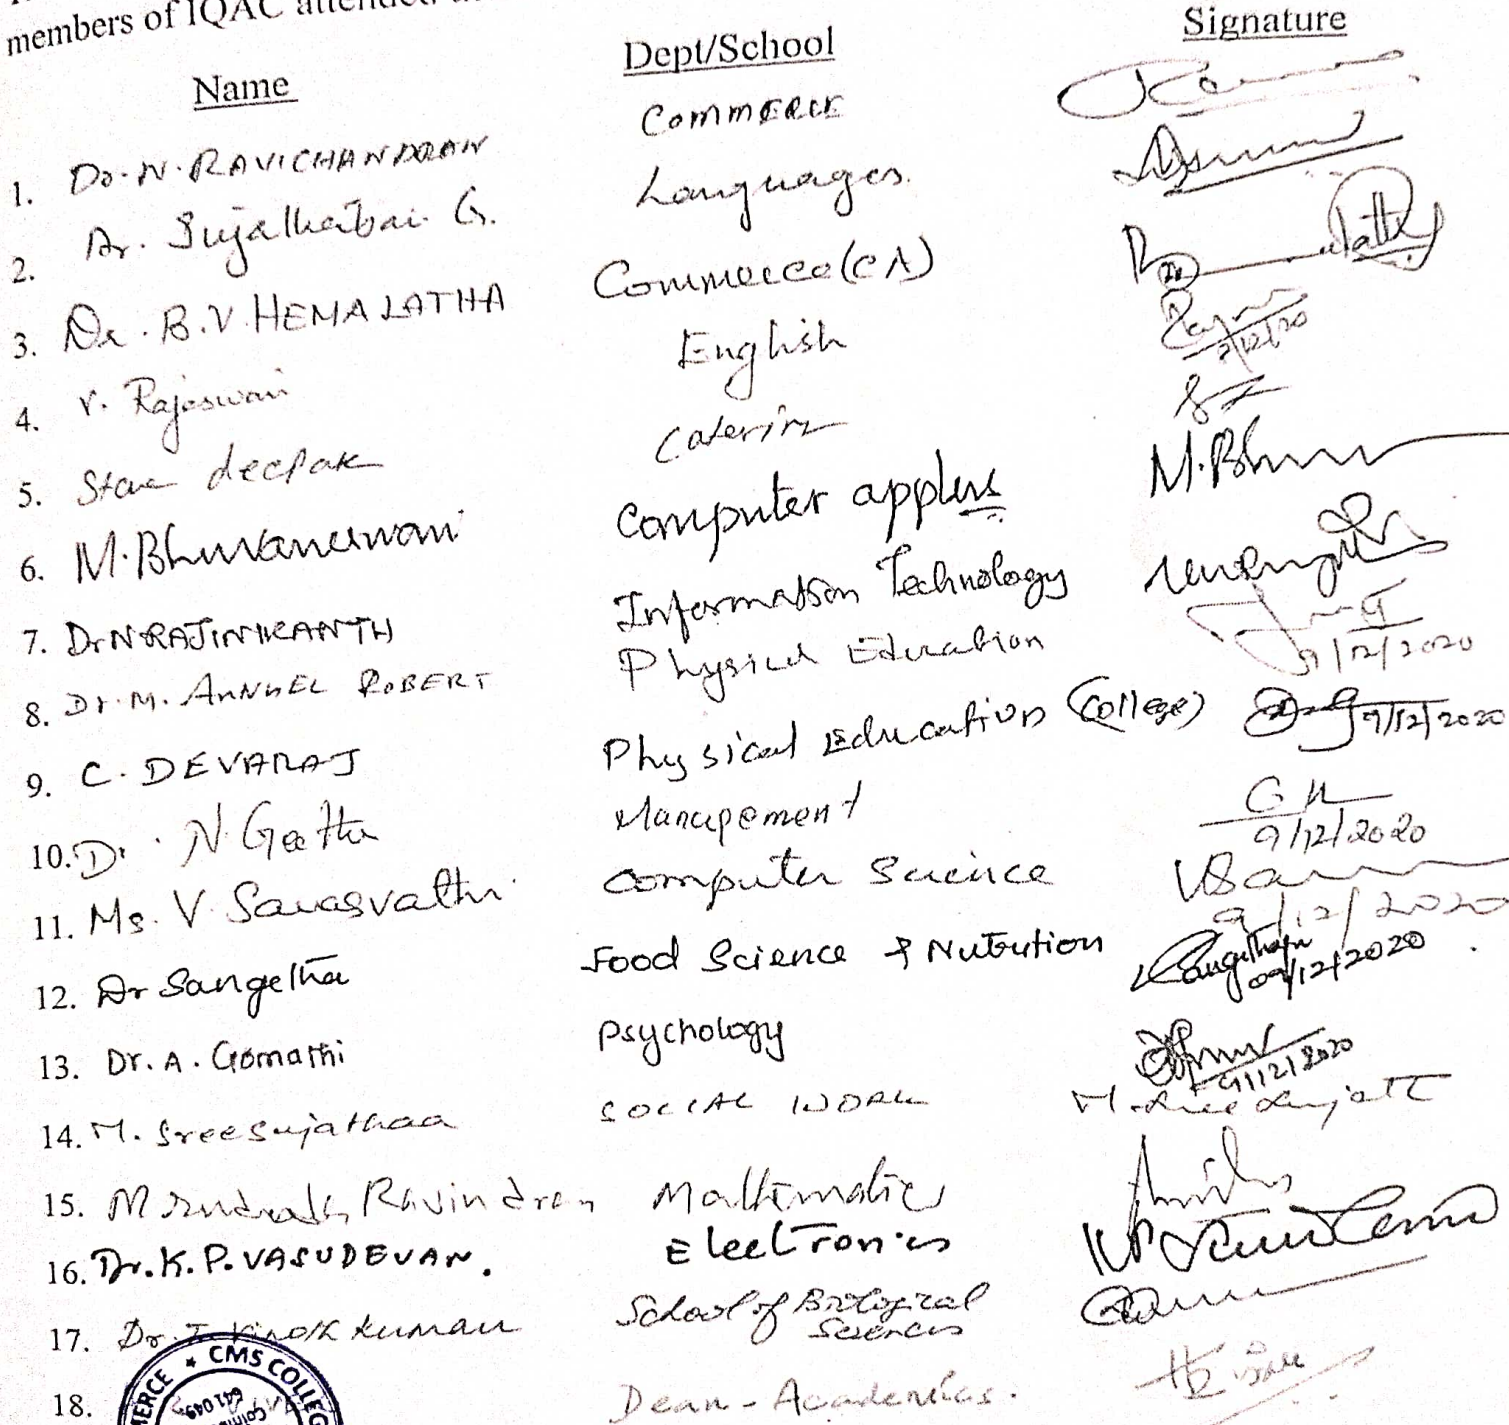 members of IQAC attended
Name Dept/School Signature
1. Dr. N. RAVICHANDRAN Commerce
2. Dr. Sujathabai G. Languages.
3. Dr. B.V. HEMALATHA Commerce (CA)
4. V. Rajeswari English 9/12/20
5. Steve deepak Caterin
6. M. Bhuvaneswari Computer applns M. Bhu
7. Dr N RAJINIKANTH Information Technology
8. Dr. M. ANNUEL ROBERT Physical Education 9/12/2020
9. C. DEVARAJ Physical Education (College) 9/12/2020
10. Dr. N Geetha Management 9/12/2020
11. Ms. V Sarasvathi Computer Science 9/12/2020
12. Dr Sangeetha Food Science & Nutrition 09/12/2020
13. Dr. A. Gomathi Psychology 9/12/2020
14. M. Sreesujathaa SOCIAL WORK
15. Ravindran Mathematics
16. Dr. K. P. VASUDEVAN. Electronics
17. Dr. Vinoth Kumar School of Biological
Sciences
18. Dean - Academics.
CMS COLLEGE
641 049